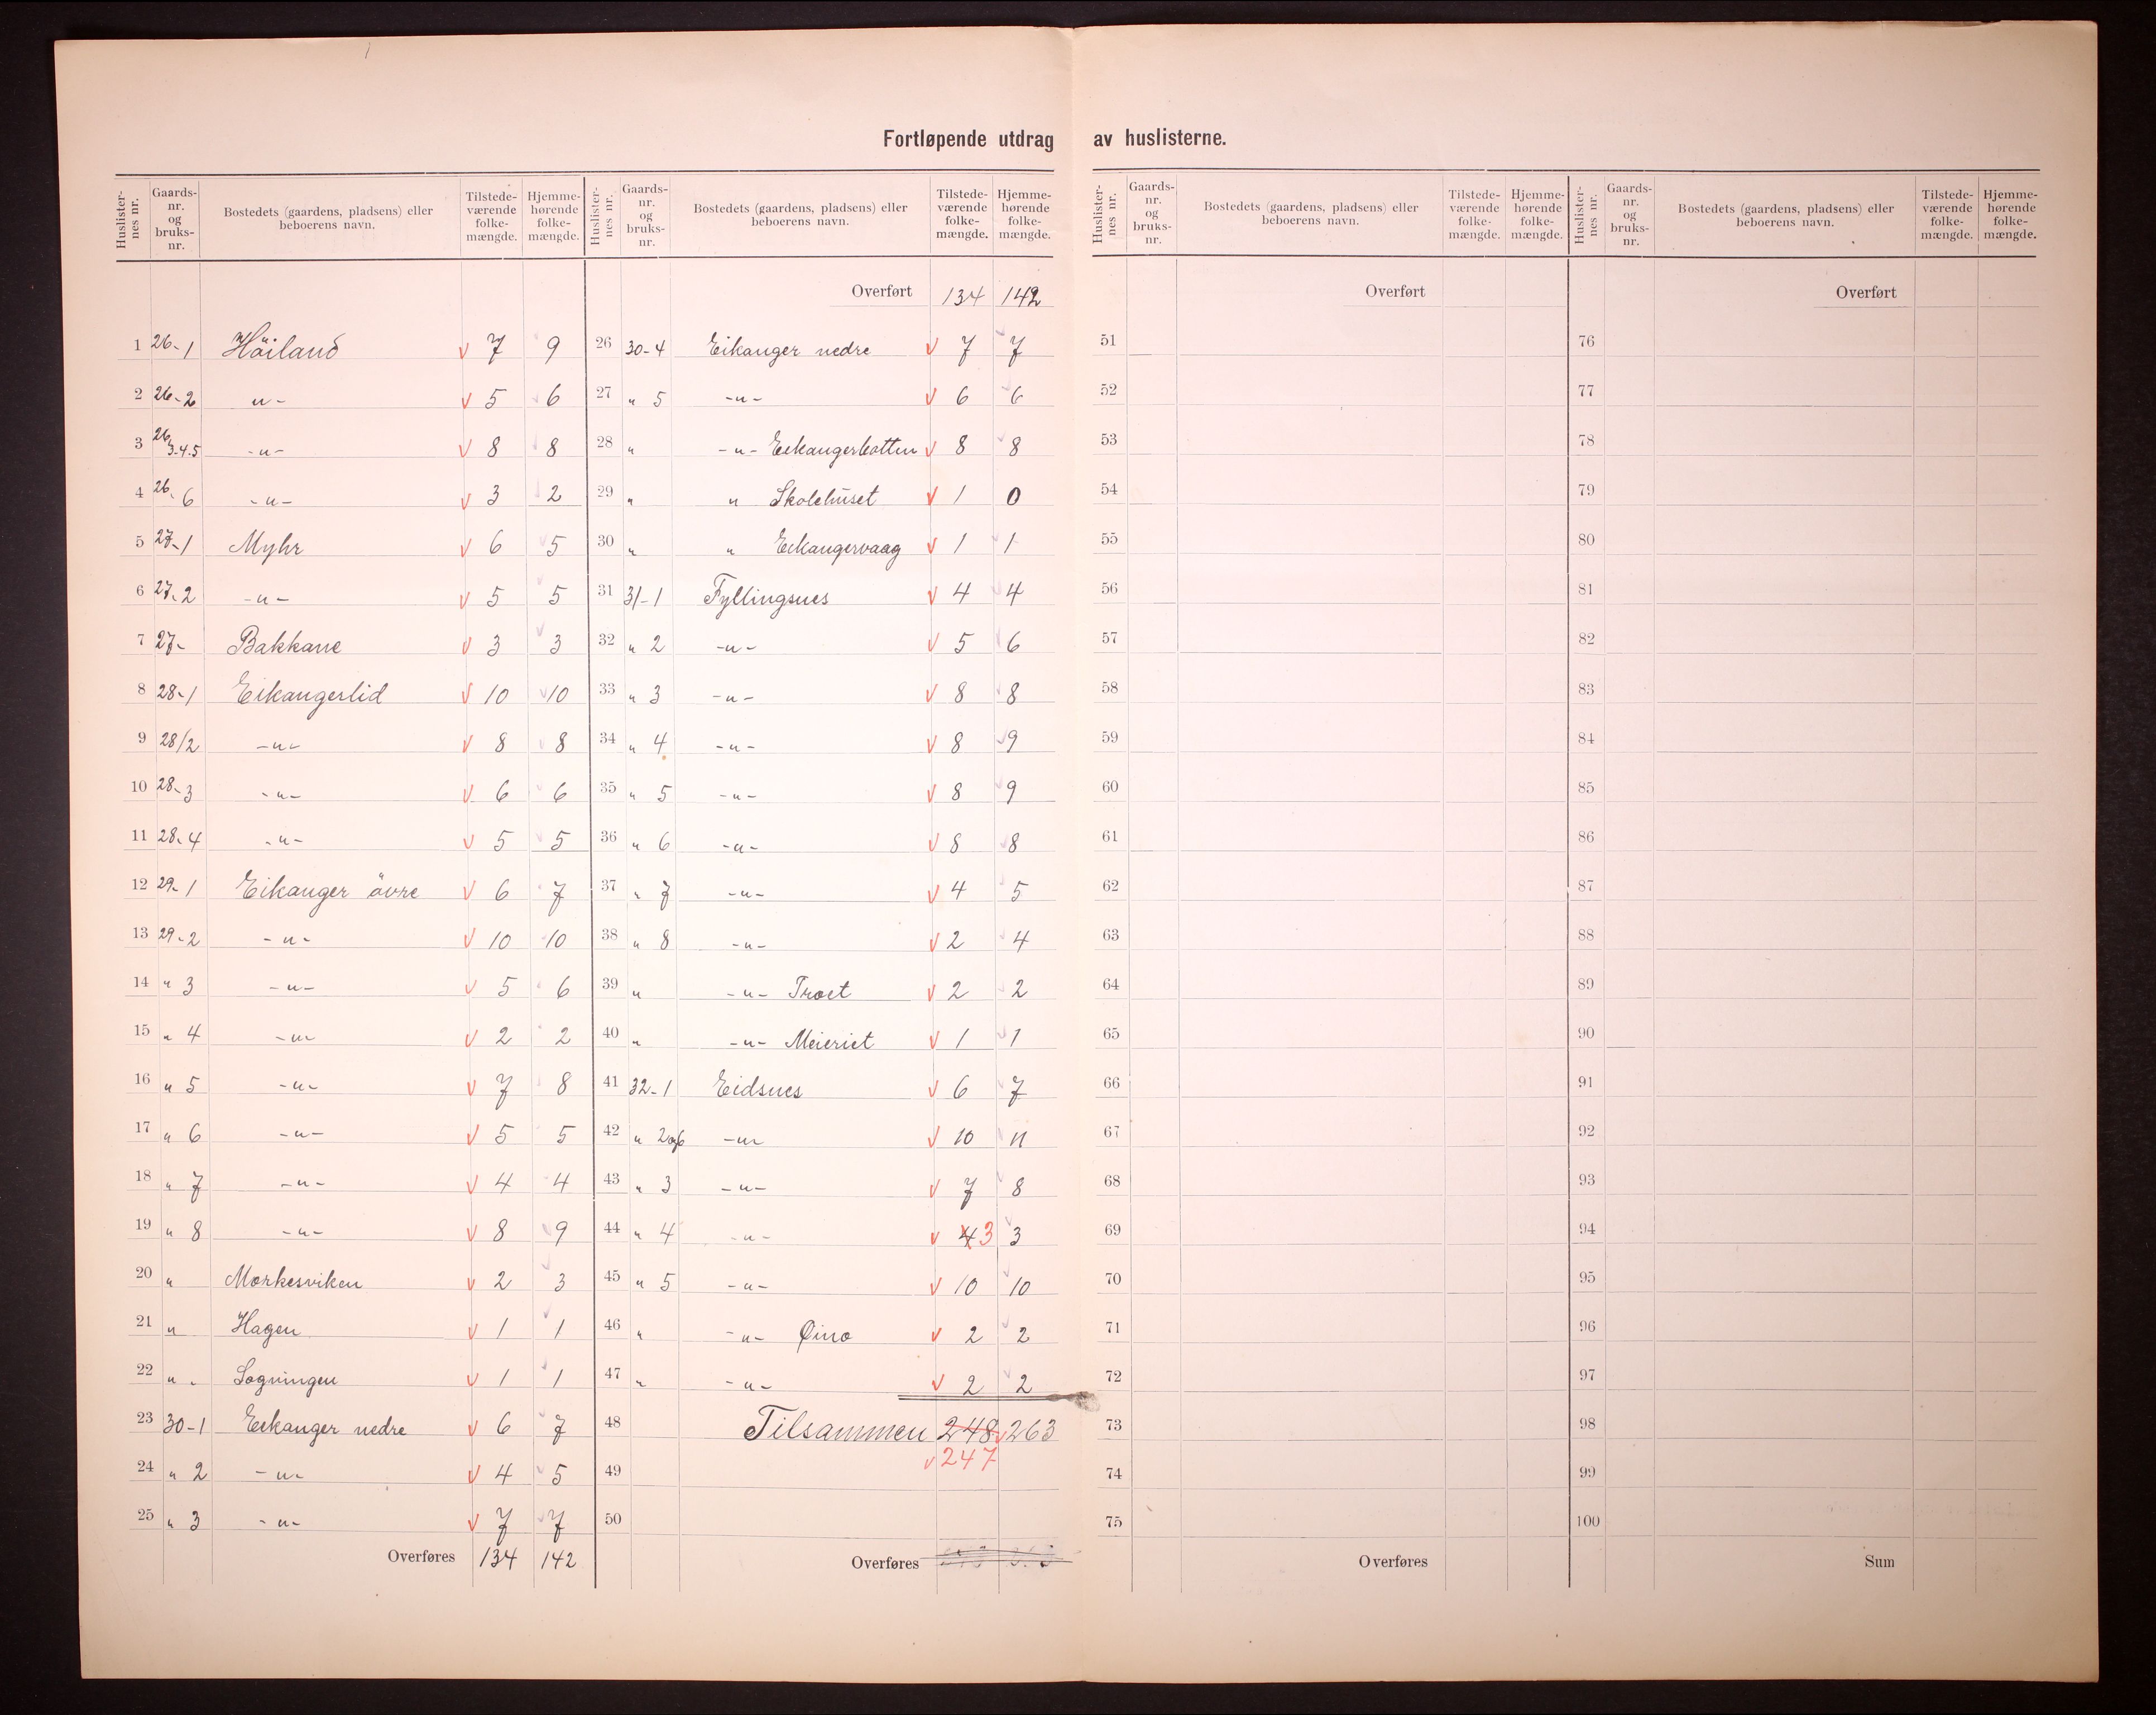 Fortløpende utdrag av huslisterne.
Huslisternes nr. Gaards-nr. og bruks-nr. Bostedets (gaardens, pladsens) eller beboerens navn. Tilstede-værende folke-mængde. Hjemme-hørende folke-mængde.
1 26-1 Höiland V 7 9
2 26-2 -"- V 5 6
3 26 3-4-5 -"- V 8 8
4 26-6 -"- V 3 2
5 27-1 Myhr V 6 5
6 27-2 -"- V 5 5
7 27- Bakkane V 3 3
8 28-1 Eikangerlid V 10 10
9 28/2 -"- V 8 8
10 28-3 -"- V 6 6
11 28-4 -"- V 5 5
12 29-1 Eikanger övre V 6 7
13 29-2 -"- V 10 10
14 " 3 -"- V 5 6
15 " 4 -"- V 2 2
16 " 5 -"- V 7 8
17 " 6 -"- V 5 5
18 " 7 -"- V 4 4
19 " 8 -"- V 8 9
20 " Mørkesviken V 2 3
21 " Hagen V 1 1
22 " - Sogningen V 1 1
23 30-1 Eikanger nedre V 6 7
24 " 2 -"- V 4 5
25 " 3 -"- V 7 7
Overføres 134 142
Huslisternes nr. Gaards-nr. og bruks-nr. Bostedets (gaardens, pladsens) eller beboerens navn. Tilstede-værende folke-mængde. Hjemme-hørende folke-mængde.
Overført 134 142
26 30-4 Eikanger nedre V 7 7
27 " 5 -"- V 6 6
28 " -"- Eikangerbotten V 8 8
29 " " Skolehuset V 1 0
30 " " Eikangervaag V 1 1
31 31-1 Fyllingsnes V 4 4
32 " 2 -"- V 5 6
33 " 3 -"- V 8 8
34 " 4 -"- V 8 9
35 " 5 -"- V 8 9
36 " 6 -"- V 8 8
37 " 7 -"- V 4 5
38 " 8 -"- V 2 4
39 " -"- Troet V 2 2
40 " -"- Meieriet V 1 1
41 32-1 Eidsnes V 6 7
42 " 2og6 -"- V 10 11
43 " 3 -"- V 7 8
44 " 4 -"- V 4 3 3
45 " 5 -"- V 10 10
46 " -"- Øino V 2 2
47 " -"- V 2 2
48 Tilsammen 248 V 263
49 V 247
50
Overføres
Huslisternes nr. Gaards-nr. og bruks-nr. Bostedets (gaardens, pladsens) eller beboerens navn. Tilstede-værende folke-mængde. Hjemme-hørende folke-mængde.
Overført
51
52
53
54
55
56
57
58
59
60
61
62
63
64
65
66
67
68
69
70
71
72
73
74
75
Overføres
Huslisternes nr. Gaards-nr. og bruks-nr. Bostedets (gaardens, pladsens) eller beboerens navn. Tilstede-værende folke-mængde. Hjemme-hørende folke-mængde.
Overført
76
77
78
79
80
81
82
83
84
85
86
87
88
89
90
91
92
93
94
95
96
97
98
99
100
Sum